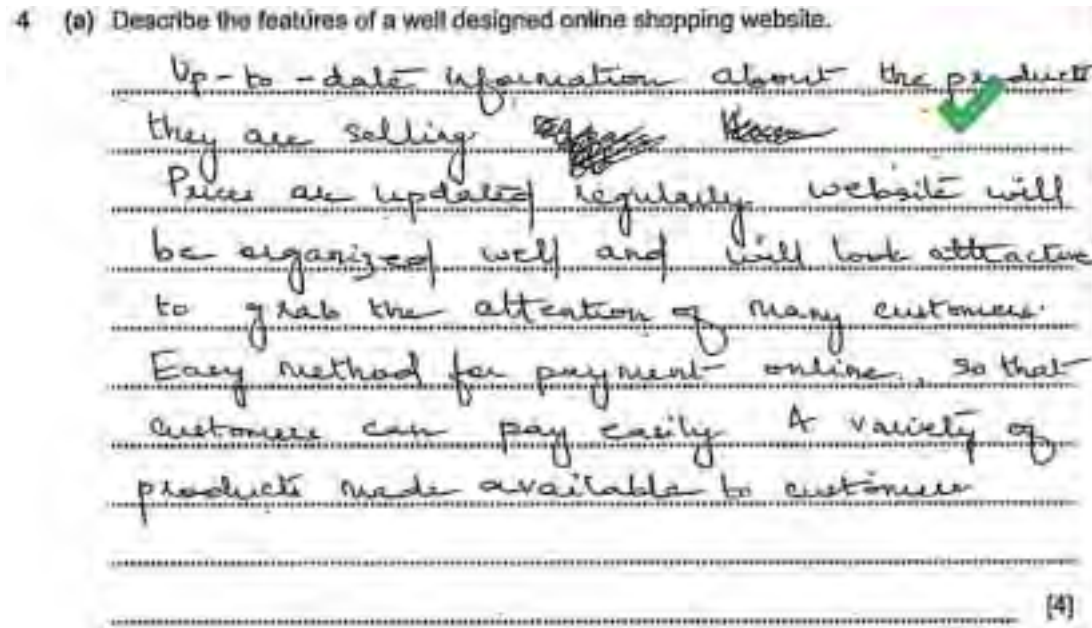 4 (a) Describe the features of a well designed online shopping website.
Up-to-date information about the products
they are selling.
Prices are updated regularly. website will
be organized well and will look attractive
to grab the attention of many customers.
Easy method for payment online., so that
customers can pay easily. A variety of
products made available to customers
[4]